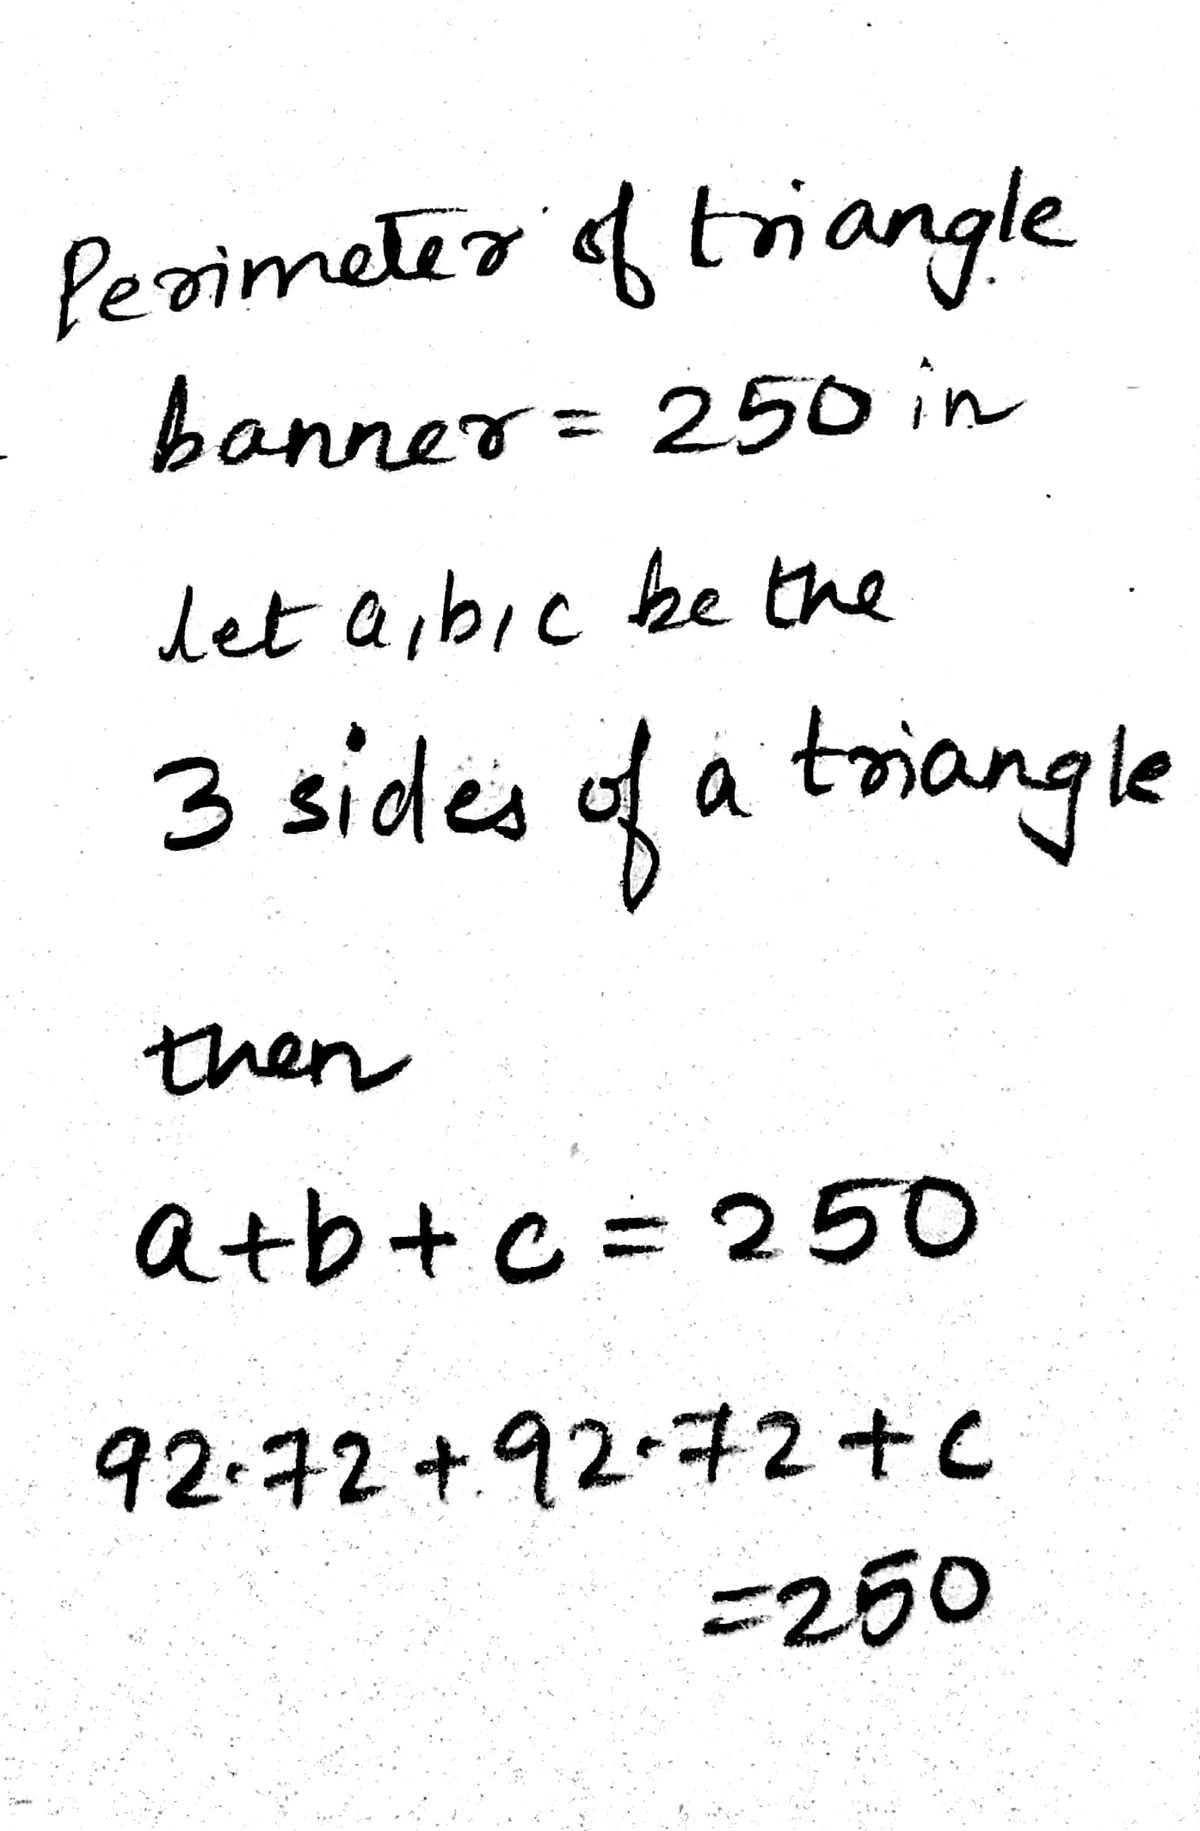 Perimeter of triangle
banner = 250 in
let a, b, c be the
3 sides of a triangle
then
a + b + c = 250
92.72 + 92.72 + c
= 250